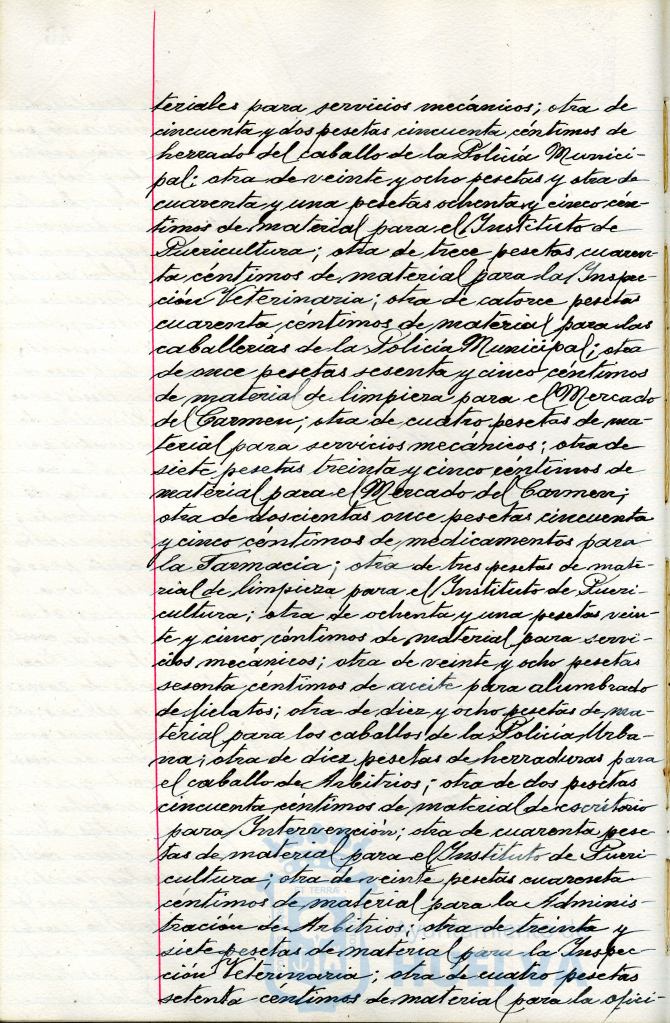 teriales para servicios mecánicos; otra de
cincuenta y dos pesetas cincuenta céntimos de
herrado del caballo de la Policía Munici-
pal; otra de veinte y ocho pesetas y otra de
cuarenta y una pesetas ochenta y cinco cén-
timos de material para el Instituto de
Puericultura; otra de trece pesetas cuaren-
ta céntimos de material para la Inspec-
ción Veterinaria; otra de catorce pesetas
cuarenta céntimos de material para las
caballerías de la Policía Municipal; otra
de once pesetas sesenta y cinco céntimos
de material de limpieza para el Mercado
del Carmen; otra de cuatro pesetas de ma-
terial para servicios mecánicos; otra de
siete pesetas treinta y cinco céntimos de
material para el Mercado del Carmen;
otra de doscientas once pesetas cincuenta
y cinco céntimos de medicamentos para
la Farmacia; otra de tres pesetas de mate-
rial de limpieza para el Instituto de Pueri-
cultura; otra de ochenta y una pesetas vein-
te y cinco céntimos de material para servi-
cios mecánicos; otra de veinte y ocho pesetas
sesenta céntimos de aceite para alumbrado
de fielatos; otra de diez y ocho pesetas de ma-
terial para los caballos de la Policía Urba-
na; otra de diez pesetas de herraduras para
el caballo de Arbitrios; otra de dos pesetas
cincuenta céntimos de material de escritorio
para Intervención; otra de cuarenta pese-
tas de material para el Instituto de Pueri-
cultura; otra de veinte pesetas cuarenta
céntimos de material para la Adminis-
tración de Arbitrios; otra de treinta y
siete pesetas de material para la Inspec-
ción Veterinaria; otra de cuatro pesetas
setenta céntimos de material para la ofici-
ET TERRÆ
Ayuntamiento de
HUELVA